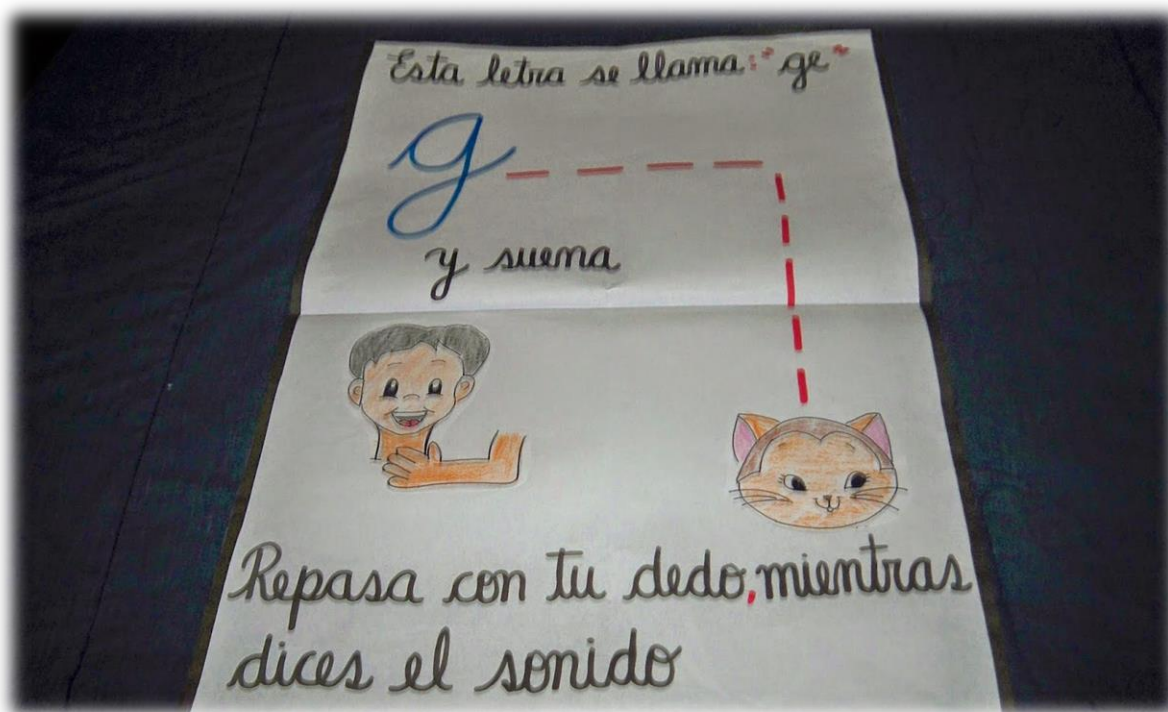 Esta letra se llama: "ge"
g
y suena
Repasa con tu dedo, mientras
dices el sonido